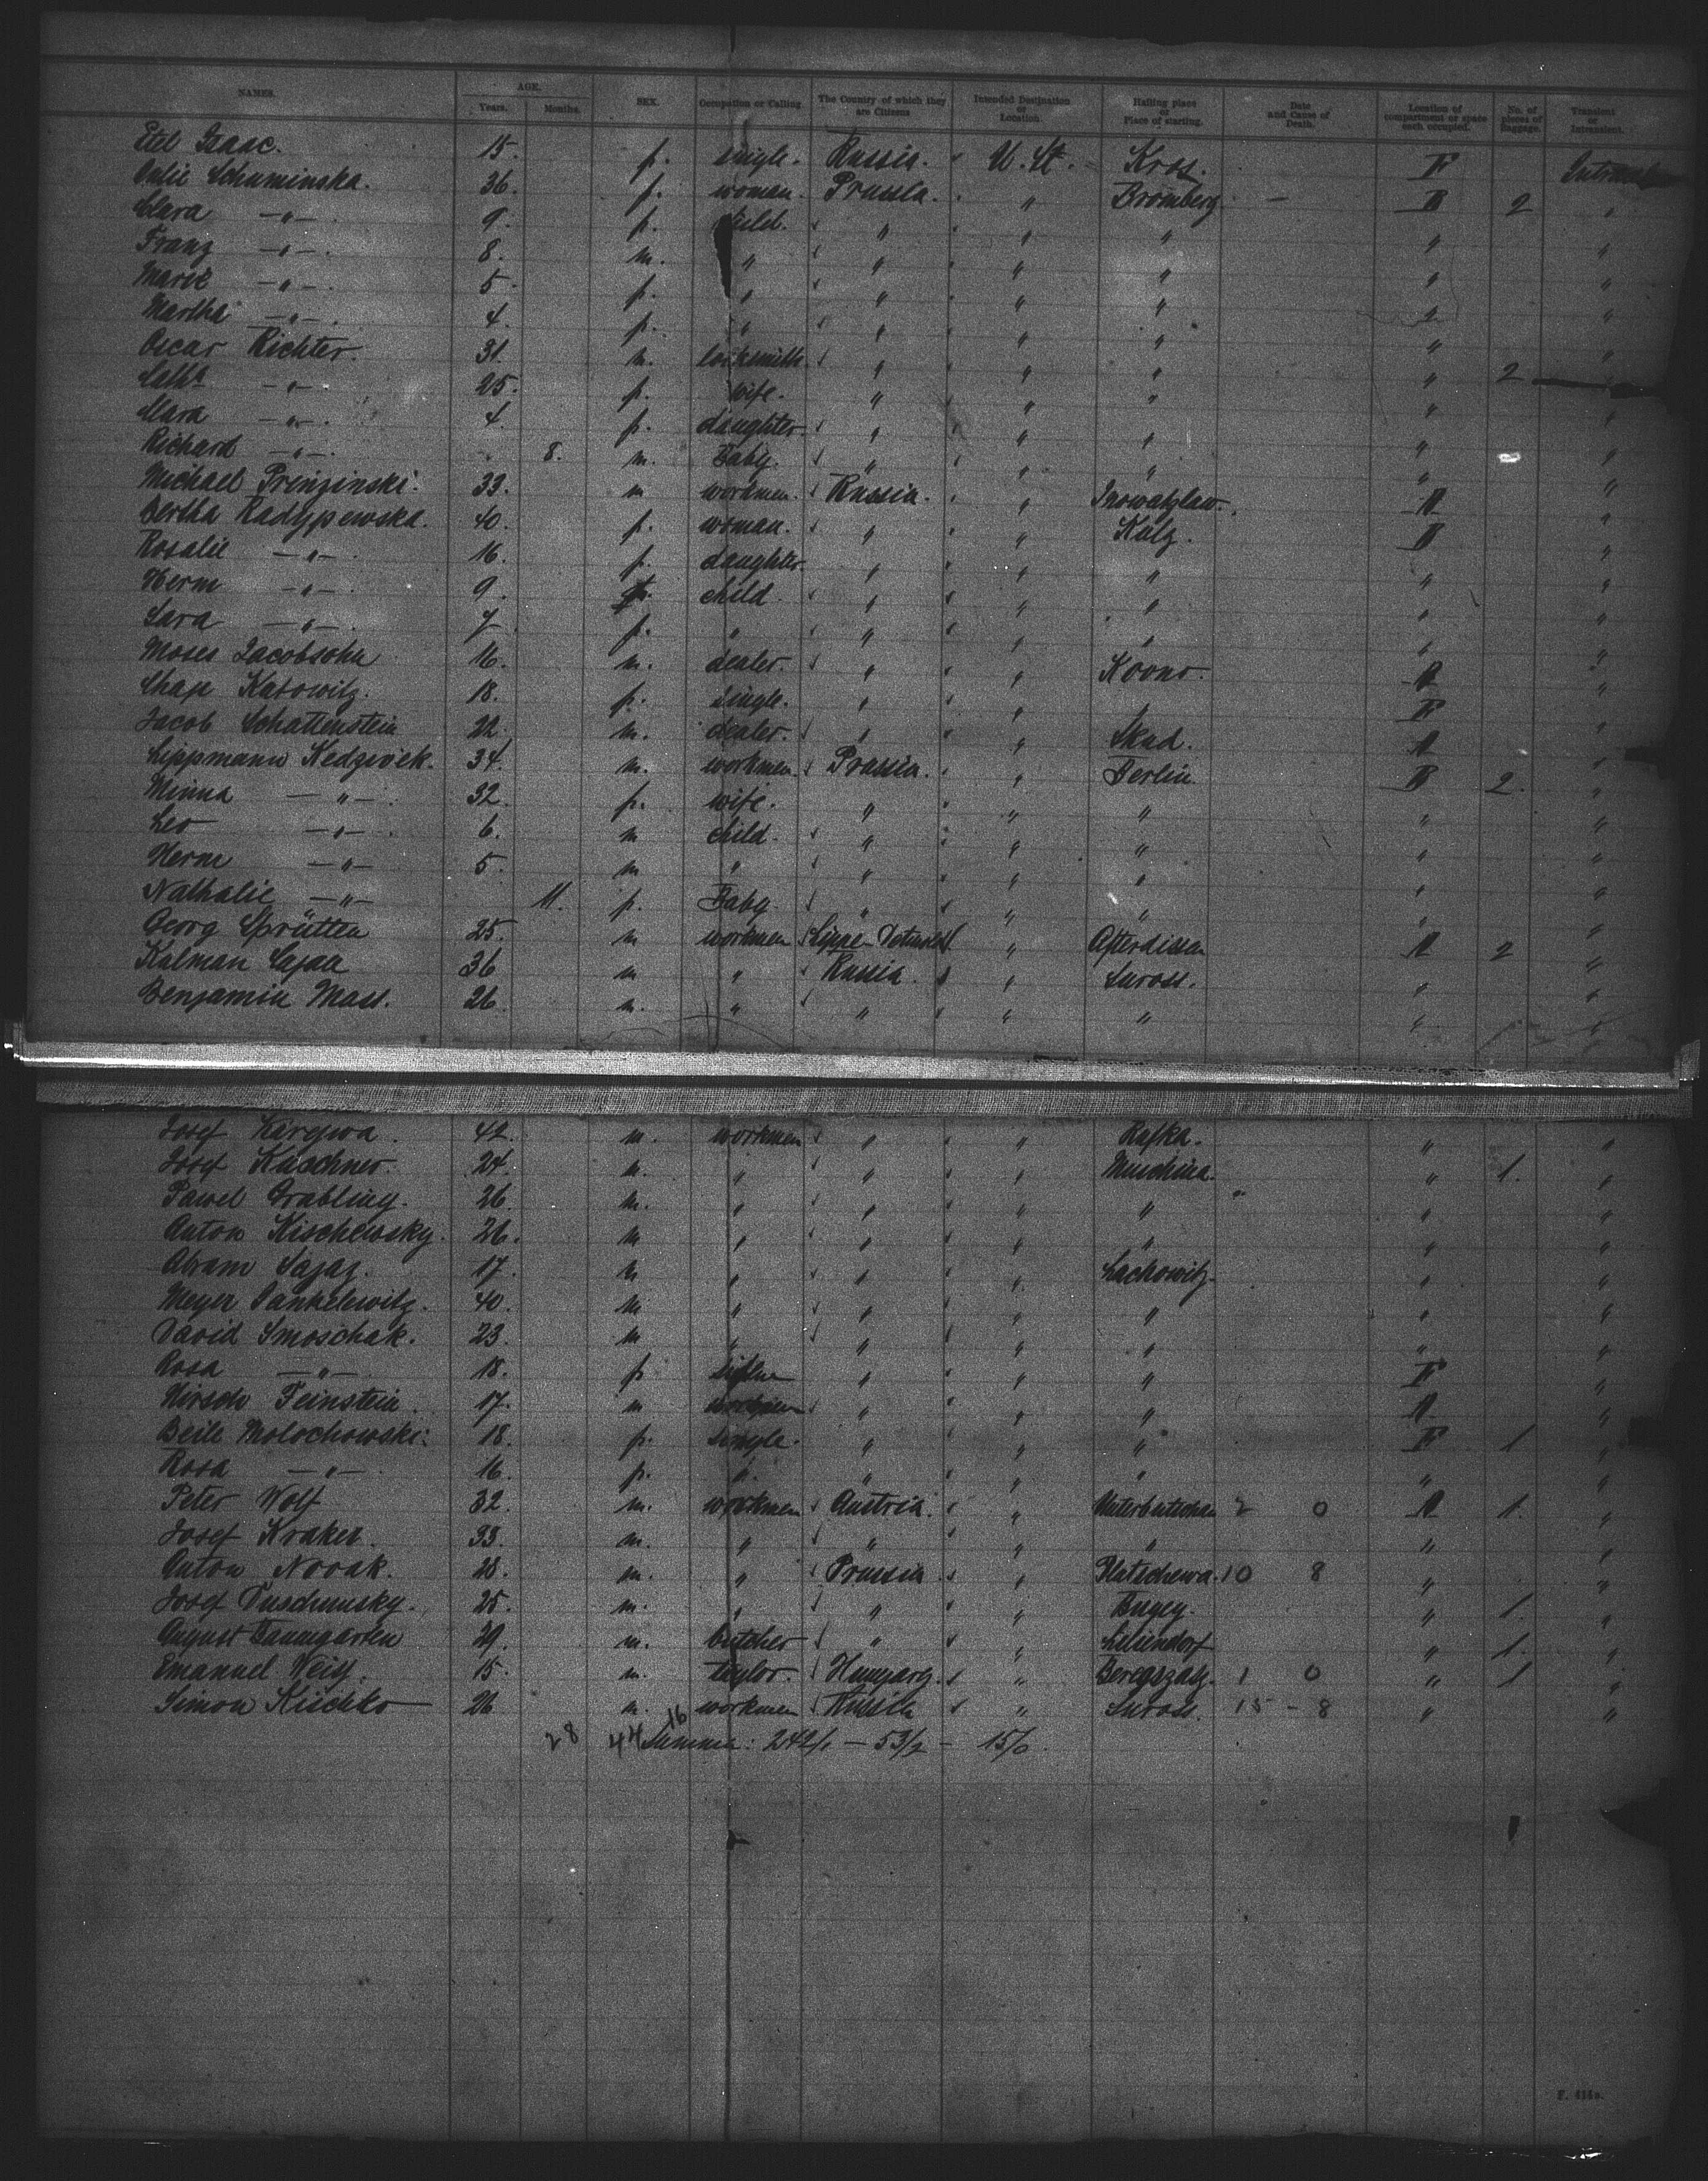 NAMES. AGE. Years. Months. SEX. Occupation or Calling The Country of which they are Citizens Intended Destination or Location. Hailing place or Place of starting. Date and Cause of Death. Location of compartment or space each occupied. No. of pieces of Baggage. Transient or Intransient.
Etel Isaac. 15. f. single. Russia. U. St. Kros. F
Schuminska. 36. f. woman. Prussia. " Bromberg. — B 2 "
Clara —"— 9. f. child. " " " " "
Franz —"— 8. m. " " " " " "
Marie —"— 5. f. " " " " " "
Martha —"— 4. f. " " " " " "
Oscar Richter. 31. m. locksmith " " " " 2 "
Cathe —"— 25. f. wife. " " " " "
Clara —"— 4. f. daughter. " " " " "
Richard —"— 8. m. Baby. " " " " "
Michael Prinzinski. 33. m workmen. Russia. " Inowatzlaw. A "
Bertha 40. f. woman. " " Kolz. B "
Rosalie —"— 16. f. daughter. " " " " "
Herm —"— 9. child. " " " " "
Sara —"— 7. f. " " " " " "
Moses Jacobsohn 16. m. dealer. " " Kovno. A "
Katowitz. 18. f. single. " " " F "
Jacob Schattenstein 22. m. dealer. " " Skud. A "
Lippmann Kedziorek. 34. m. workmen. Prussia. " Berlin B 2. "
Minna —"— 32. f. wife. " " " " "
Leo —"— 6. m child. " " " " "
Herm —"— 5. m " " " " " "
Nathalie —"— 11. f. Baby. " " " " "
Georg Sprütten 25. m workmen Lippe-Detmold " Afterdissen A 2 "
Kalman 36 m " Russia. " Suross. " "
Benjamin Mass. 26. m. " " " " " "
Josef 42. m. workmen " " Rafka. " "
Josef Kaschner. 24. m. " " " Muschina. " 1. "
Pawel Grabling. 26. m. " " " " " "
Anton Kischewsky. 26. m " " " " " "
Abram 17. m " " " Lachowitz. " "
Meyer Jankelewitz. 40. m " " " " " "
David Smoschak. 23. m " " " " " "
Rosa —"— 18. f " " " F "
Hirsch Feinstein. 17. m " " " A "
Beile Molochowski. 18. f. single. " " " F 1 "
Rosa —"— 16. f. " " " " " "
Peter Wolf 32. m. workmen Austria. " 2 0 A 1. "
Josef Kraker. 33. m. " " " " " "
Anton Novak. 28. m. " Prussia " 10 8 " "
Josef Tuschinsky. 25. m. " " " " 1. "
August Baumgarten 29. m. butcher " " Liliendorf " 1. "
Emanuel Weiss. 15. m. taylor. Hungary. " Beregszasz. 1 0 " 1 "
Simon Kischko 26 m. workmen Russia " Suross. 15 - 8 " "
28 44 16 Summa: 242/1 — 53/2 — 15/0.